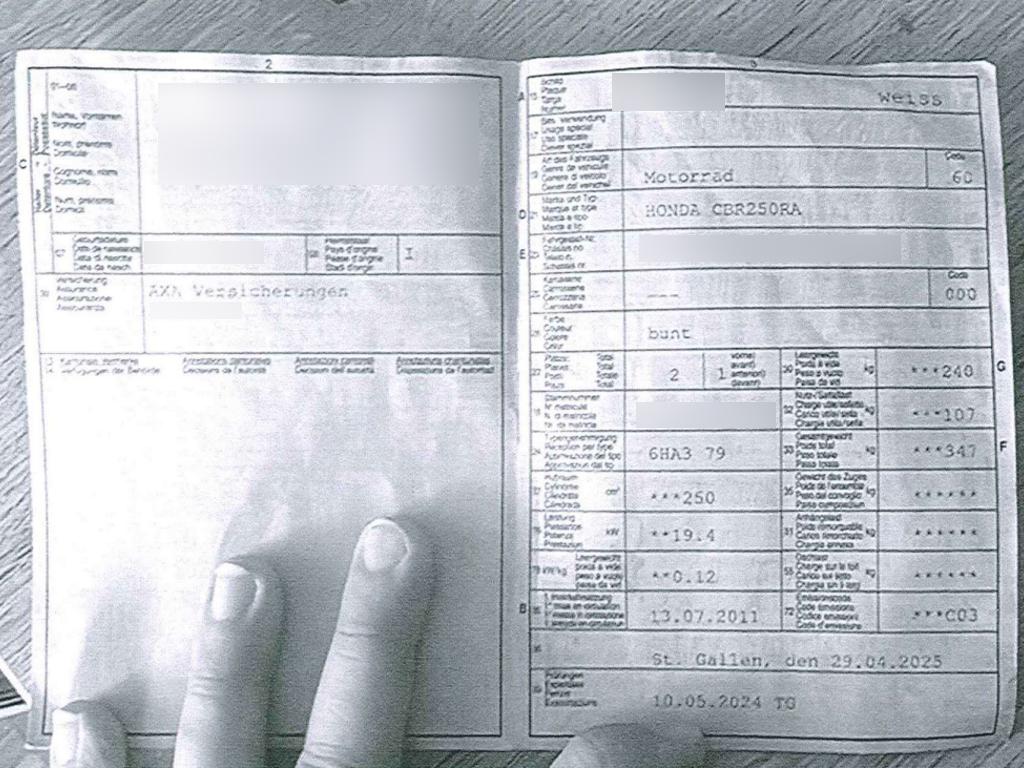 2
01-06
Name, Vornamen
Wohnort
Nom, prénoms
Domicile
Cognome, nomi
Domicilio
Num, prenums
Domicil
C
07
Geburtsdatum
Date de naissance
Data di nascita
Data da nasch.
08
Heimatstaat
Pays d'origine
Paese d'origine
Stadi d'origin
I
09
Versicherung
Assurance
Assicurazione
Assicuranza
AXA Versicherungen
13
14
Kantonale Vermerke
Verfügungen der Behörde
Annotations cantonales
Décisions de l'autorité
Annotazioni cantonali
Decisioni dell'autorità
Annotaziuns chantunalas
Disposiziuns da l'autoritad
3
A 15
Schild
Plaque
Targa
Numer
Weiss
17
Bes. Verwendung
Usage spécial
Uso speciale
Diever spezial
19
Art des Fahrzeugs
Genre de véhicule
Genere di veicolo
Gener dal vehichel
Motorrad
Code
60
D 21
Marke und Typ
Marque et type
Marca e tipo
Marca e tip
HONDA CBR250RA
E 23
Fahrgestell-Nr.
Châssis no
Telaio n.
Schassis nr.
25
Karosserie
Carrosserie
Carrozzeria
Carossaria
---
Code
000
26
Farbe
Couleur
Colore
Colur
bunt
27
Plätze: Total
Places: Total
Posti: Totale
Plazs: Total
2
vorne)
avant)
anteriori)
davant)
1
30
Leergewicht
Poids à vide
Peso a vuoto
Paisa da vid
kg
***240
G
18
Stammnummer
No matricule
N. di matricola
Nr. da matricla
32
Nutz-/Sattellast
Charge utile/sellette
Carico utile/sella
Chargia utila/sella
kg
***107
24
Typengenehmigung
Réception par type
Approvazione del tipo
Approvaziun dal tip
6HA3 79
33
Gesamtgewicht
Poids total
Peso totale
Paisa totala
kg
***347
F
37
Hubraum
Cylindrée
Cilindrata
Cilindrada
cm³
***250
35
Gewicht des Zuges
Poids de l'ensemble
Peso del convoglio
Paisa cumposiziun
kg
******
76
Leistung
Puissance
Potenza
Prestaziun
kW
**19.4
31
Anhängelast
Poids remorquable
Carico rimorchiato
Chargia annexa
kg
******
78
kW/kg
Leergewicht
poids à vide
peso a vuoto
paisa da vid
**0.12
55
Dachlast
Charge sur le toit
Carico sul tetto
Chargia sin il tetg
kg
******
B 36
1. Inverkehrsetzung
1re mise en circulation
1a messa in circolazione
1. entrada en circulaziun
13.07.2011
72
Emissionscode
Code émissions
Codice emissioni
Code d'emissiuns
***C03
38
St. Gallen, den 29.04.2025
39
Prüfungen
Expertises
Perizie
Examinaziuns
10.05.2024 TG